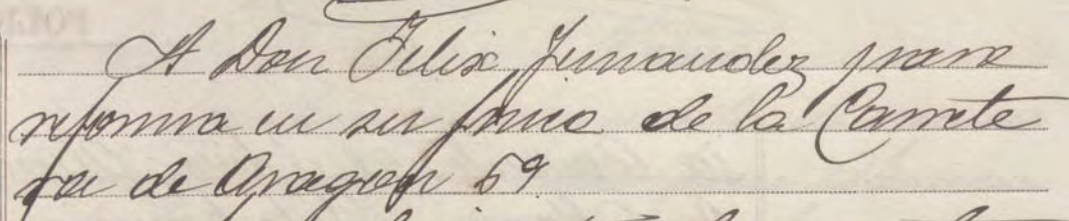 A Don Felix Fernandez para
reforma en su finca de la Carrete
ra de Aragon 69